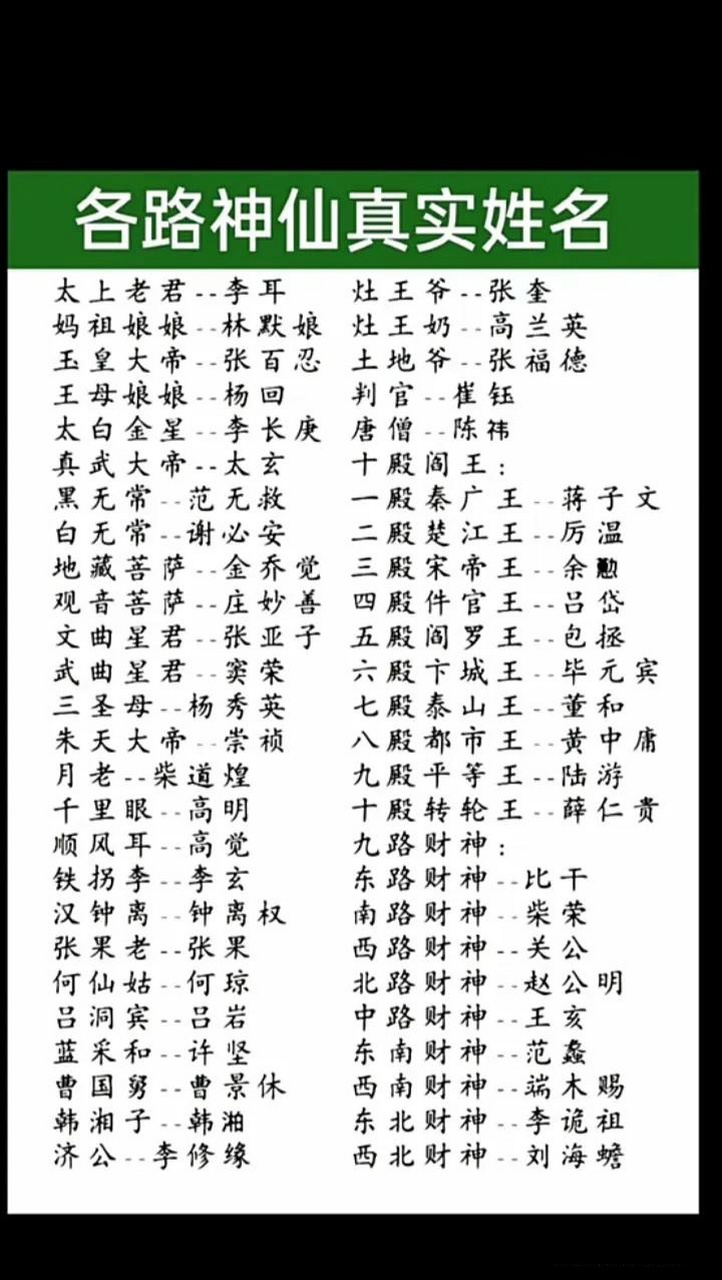 各路神仙真实姓名
太上老君--李耳
妈祖娘娘--林默娘
玉皇大帝--张百忍
王母娘娘--杨回
太白金星--李长庚
真武大帝--太玄
黑无常--范无救
白无常--谢必安
地藏菩萨--金乔觉
观音菩萨--庄妙善
文曲星君--张亚子
武曲星君--窦荣
三圣母--杨秀英
朱天大帝--崇祯
月老--柴道煌
千里眼--高明
顺风耳--高觉
铁拐李--李玄
汉钟离--钟离权
张果老--张果
何仙姑--何琼
吕洞宾--吕岩
蓝采和--许坚
曹国舅--曹景休
韩湘子--韩湘
济公--李修缘
灶王爷--张奎
灶王奶--高兰英
土地爷--张福德
判官--崔钰
唐僧--陈祎
十殿阎王:
一殿秦广王--蒋子文
二殿楚江王--厉温
三殿宋帝王--余懃
四殿仵官王--吕岱
五殿阎罗王--包拯
六殿卞城王--毕元宾
七殿泰山王--董和
八殿都市王--黄中庸
九殿平等王--陆游
十殿转轮王--薛仁贵
九路财神:
东路财神--比干
南路财神--柴荣
西路财神--关公
北路财神--赵公明
中路财神--王亥
东南财神--范蠡
西南财神--端木赐
东北财神--李诡祖
西北财神--刘海蟾